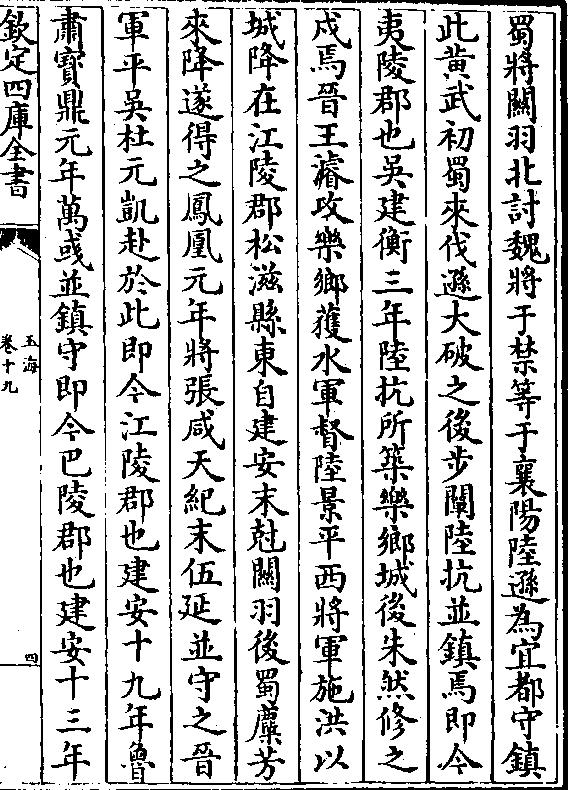 蜀將關羽北討魏將于禁等于襄陽陸遜為宜都守鎮
此黄武初蜀來伐遜大破之後步闡陸抗並鎮焉即今
夷陵郡也吳建衡三年陸抗所築樂鄉城後朱然修之
戍焉晉王濬攻樂鄉獲水軍督陸景平西將軍施洪以
城降在江陵郡松滋縣東自建安末尅關羽後蜀麋芳
來降遂得之鳳凰元年將張咸天紀末伍延並守之晉
軍平吳杜元凱赴於此即今江陵郡也建安十九年魯
肅寶鼎元年萬彧並鎮守即今巴陵郡也建安十三年
欽定四庫全書
玉海
卷十九
四